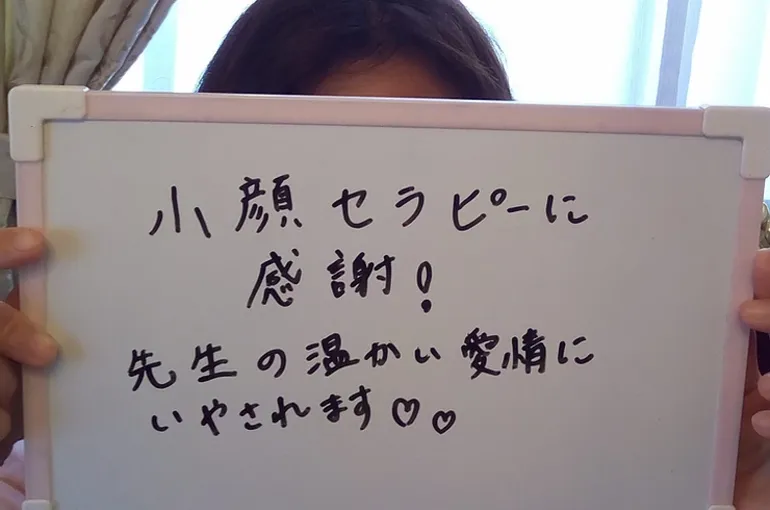 小顔セラピーに
感謝!
先生の温かい愛情に
いやされます♡♡